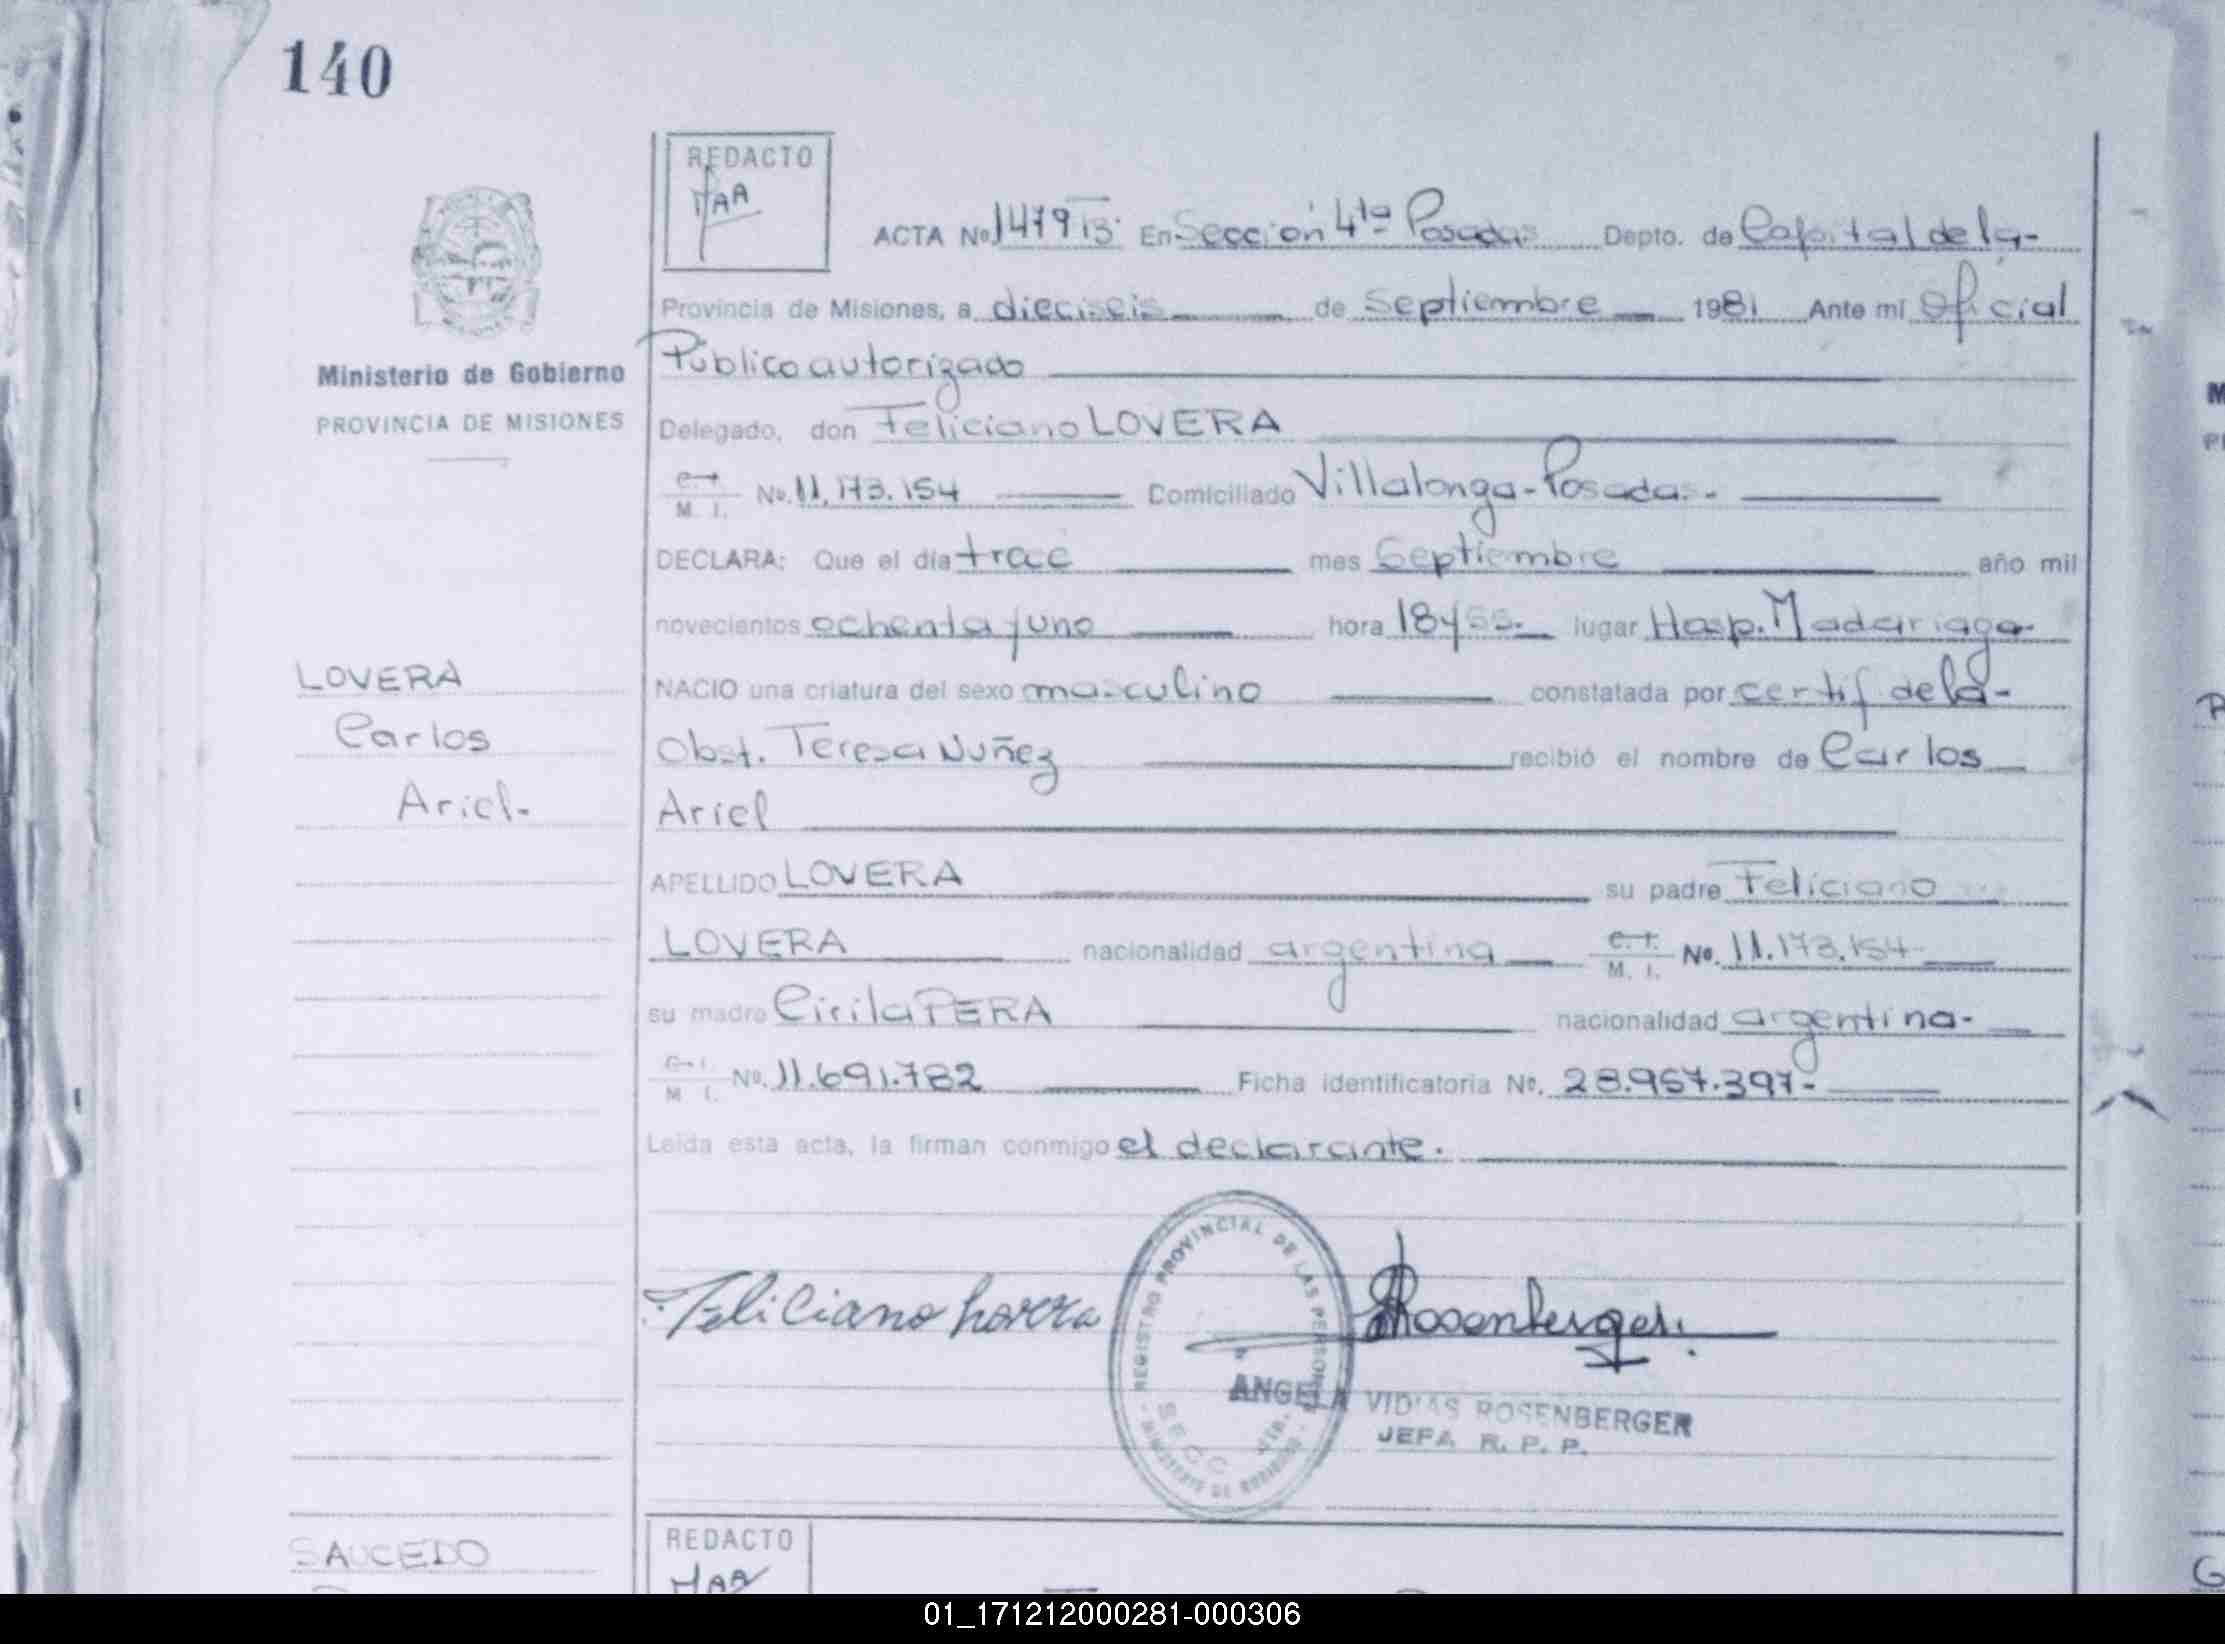 140
REDACTO
ACTA No 1479 T3. En Sección 4ta Posadas Depto. de Capital de la-
Provincia de Misiones, a dieciseis de Septiembre 1981 Ante mí Oficial
Ministerio de Gobierno
PROVINCIA DE MISIONES
Público autorizado
Delegado, don Feliciano LOVERA
M. I. No. 11.173.154 Domiciliado Villalonga-Posadas.-
DECLARA: Que el día trece mes Septiembre año mil
novecientos ochenta y uno hora 18 y 55.- lugar Hosp. Madariaga-
LOVERA
Carlos
Ariel-
NACIO una criatura del sexo masculino constatada por certif de la-
Obst. Teresa Nuñez recibió el nombre de Carlos
Ariel
APELLIDO LOVERA su padre Feliciano
LOVERA nacionalidad argentina C. I. M. I. No. 11.173.154-
su madre Cirila PERA nacionalidad argentina-
C. I. M. I. No. 11.691.782 Ficha identificatoria No. 28.957.397-
Leída esta acta, la firman conmigo el declarante.
Feliciano Lovera
Rosenberger
REGISTRO PROVINCIAL DE LAS PERSONAS
SECC. 4TA.
ANGELA VIDIAS ROSENBERGER
JEFA R. P. P.
SAUCEDO
REDACTO
01_171212000281-000306